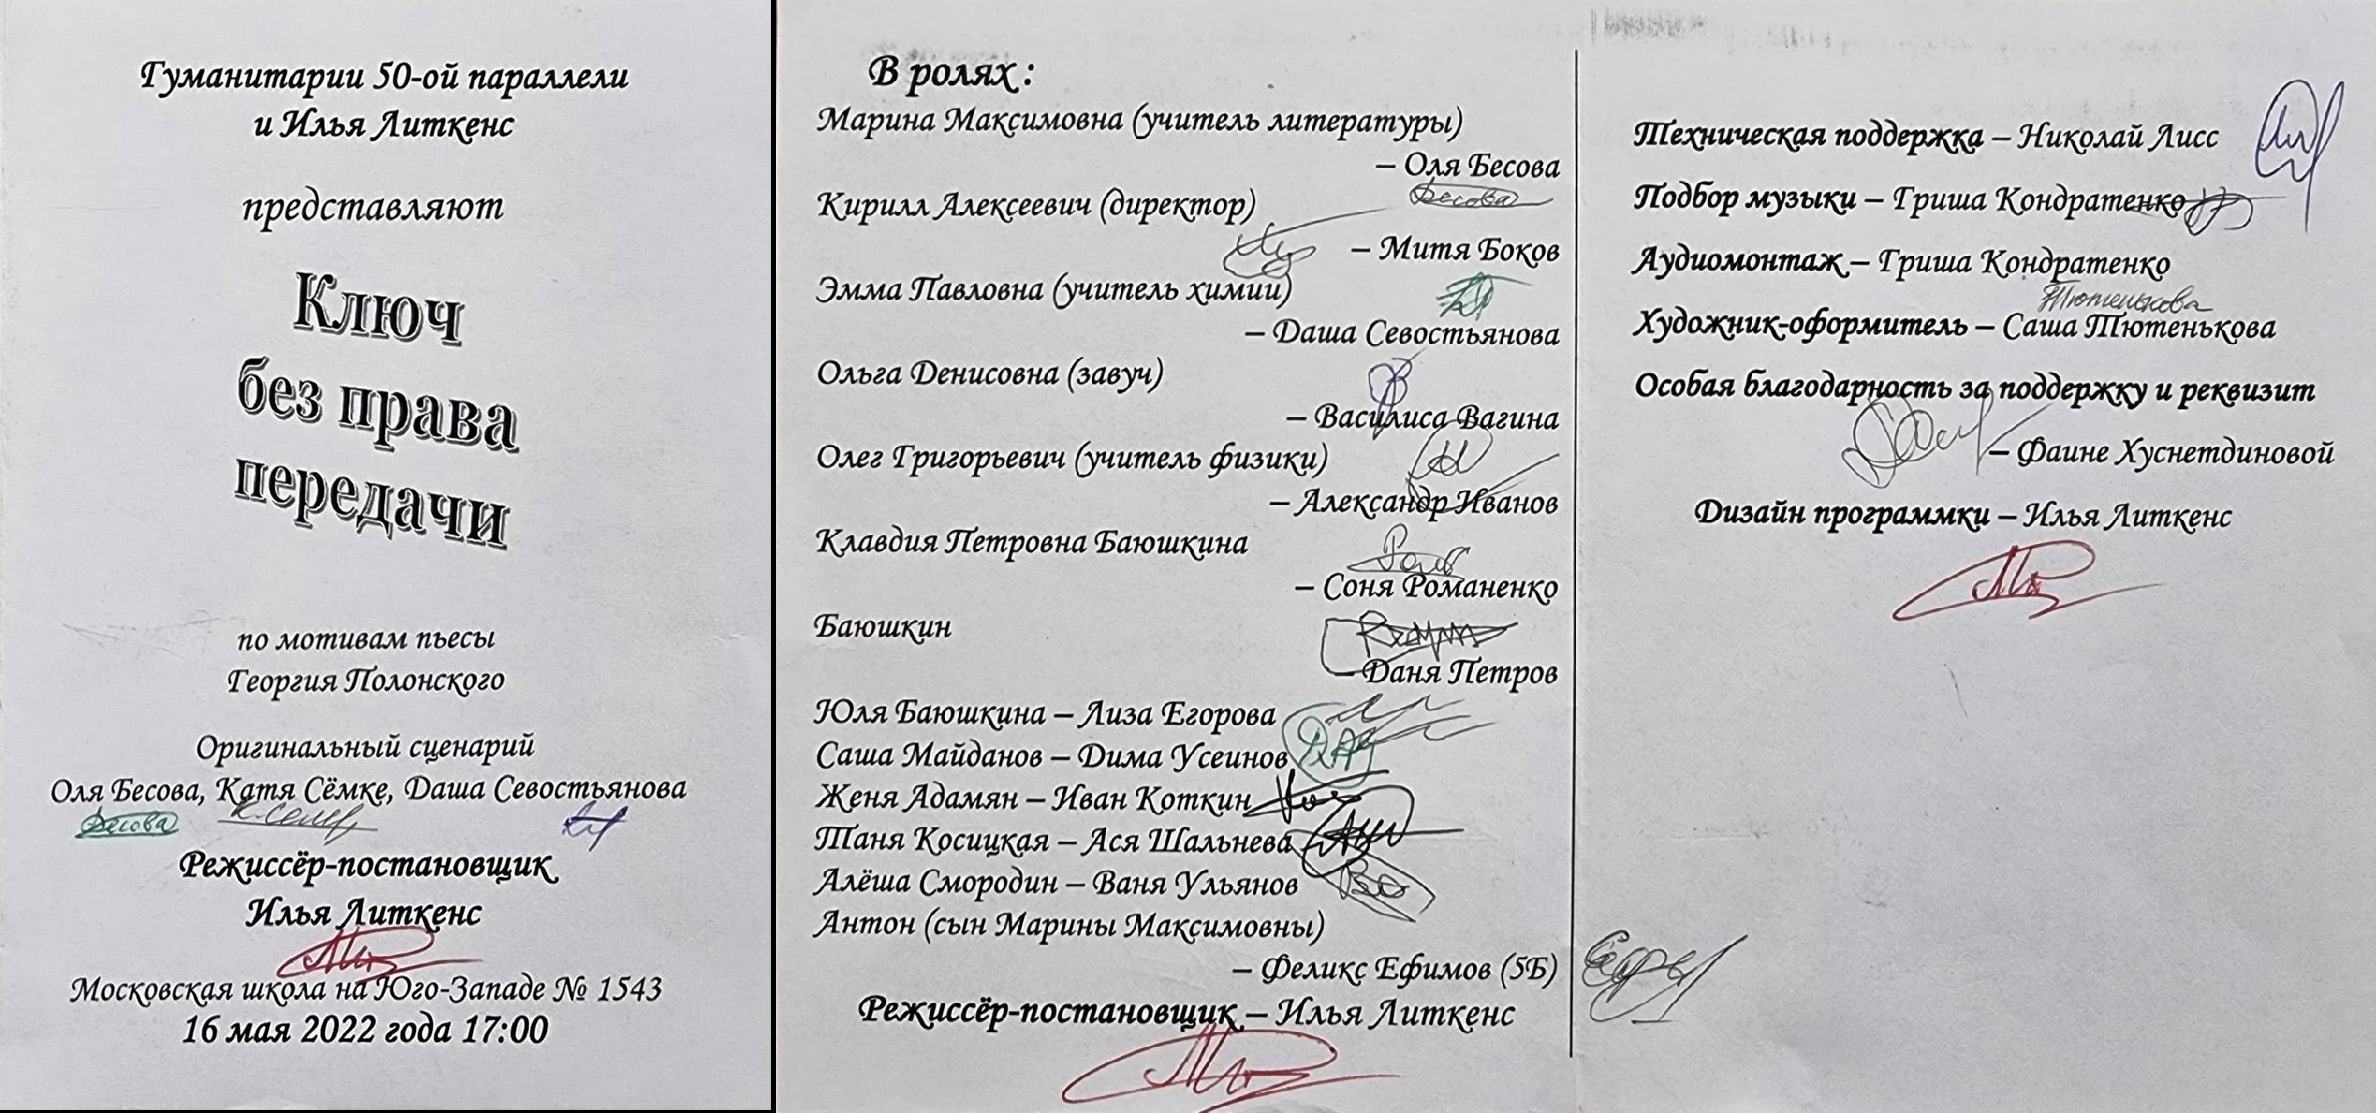 Гуманитарии 50-ой параллели
и Илья Литкенс
представляют
Ключ
без права
передачи
по мотивам пьесы
Георгия Полонского
Оригинальный сценарий
Оля Бесова, Катя Сёмке, Даша Севостьянова
Бесова
Режиссёр-постановщик
Илья Литкенс
Московская школа на Юго-Западе № 1543
16 мая 2022 года 17:00
В ролях:
Марина Максимовна (учитель литературы)
– Оля Бесова
Бесова
Кирилл Алексеевич (директор)
– Митя Боков
Эмма Павловна (учитель химии)
– Даша Севостьянова
Ольга Денисовна (завуч)
– Василиса Вагина
Олег Григорьевич (учитель физики)
– Александр Иванов
Клавдия Петровна Баюшкина
– Соня Романенко
Баюшкин
– Даня Петров
Юля Баюшкина – Лиза Егорова
Саша Майданов – Дима Усеинов
Женя Адамян – Иван Коткин
Таня Косицкая – Ася Шальнева
Алёша Смородин – Ваня Ульянов
Антон (сын Марины Максимовны)
– Феликс Ефимов (5Б)
Режиссёр-постановщик – Илья Литкенс
Техническая поддержка – Николай Лисс
Подбор музыки – Гриша Кондратенко
Аудиомонтаж – Гриша Кондратенко
Тютенькова
Художник-оформитель – Саша Тютенькова
Особая благодарность за поддержку и реквизит
– Фаине Хуснетдиновой
Дизайн программки – Илья Литкенс